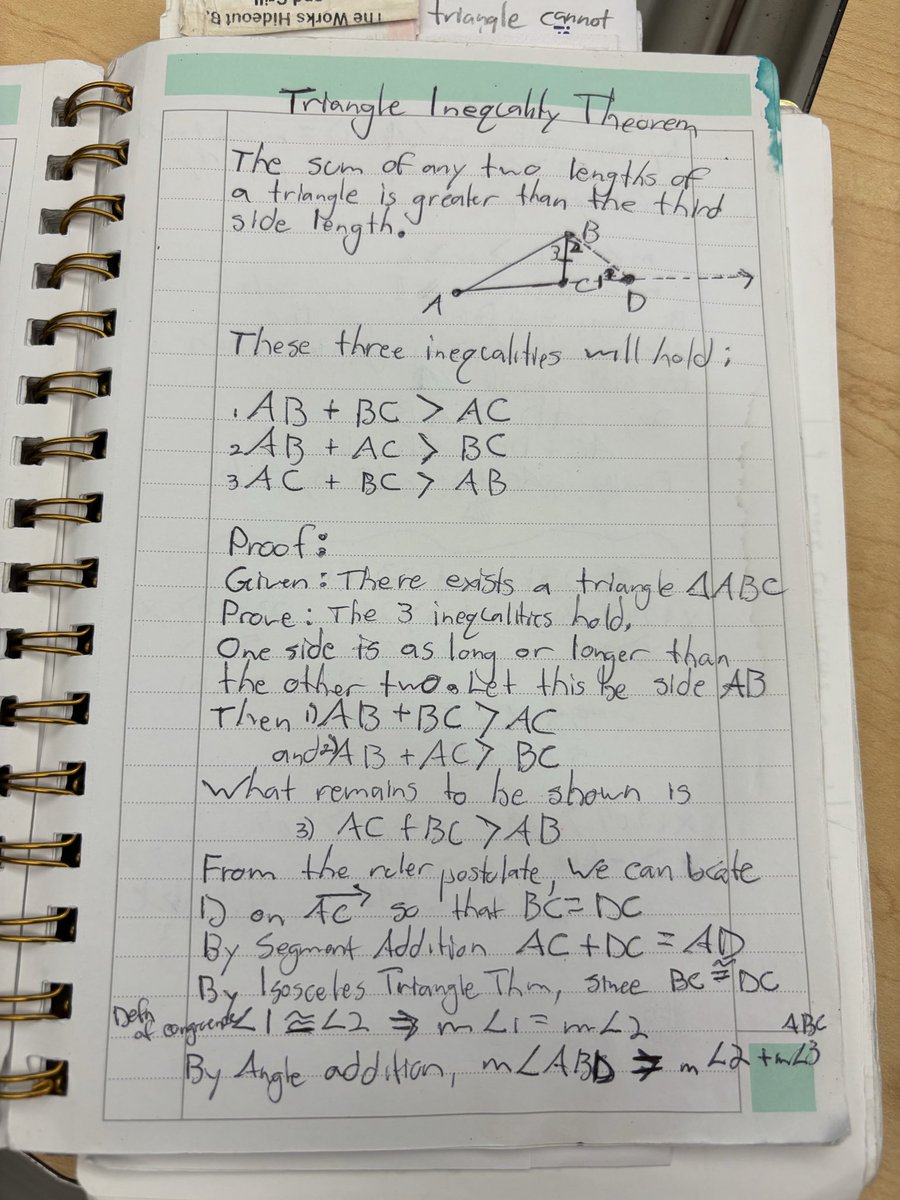 The Works Hideout B
triangle cannot
Triangle Inequality Theorem
The sum of any two lengths of
a triangle is greater than the third
side length.
B
3 2
A C 1 2 D
These three inequalities will hold:
1 AB + BC > AC
2 AB + AC > BC
3 AC + BC > AB
Proof:
Given: There exists a triangle △ABC
Prove: The 3 inequalities hold.
One side is as long or longer than
the other two. Let this be side AB
Then 1) AB + BC > AC
and 2) AB + AC > BC
What remains to be shown is
3) AC + BC > AB
From the ruler postulate, we can locate
D on AC→ so that BC = DC
By Segment Addition AC + DC = AD
By Isosceles Triangle Thm, since BC ≅ DC
Defn of congruence ∠1 ≅ ∠2 ⇒ m∠1 = m∠2
ABC
By Angle addition, m∠ABD = m∠2 + m∠3